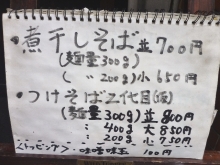 ・煮干しそば 並700円
(麺量300g)
( 〃 200g)小650円
・つけそば二代目(仮)
(麺量300g)並800円
〃 400g 大850
〃 200g 小750
〈トッピング〉 味玉 100円